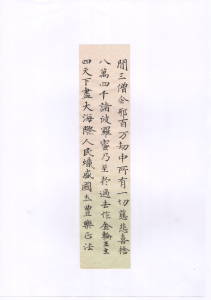 三僧企耶百万劫中所有一切慈悲喜捨
八萬四千諸波羅蜜乃至於過去作金輪王王
四天下盡大海際人民熾盛國土豊樂正法